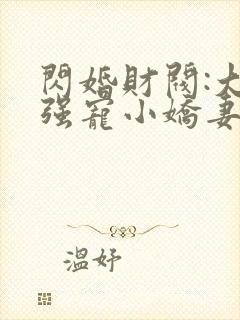 閃婚財閥:大
強寵小嬌妻
溫妤